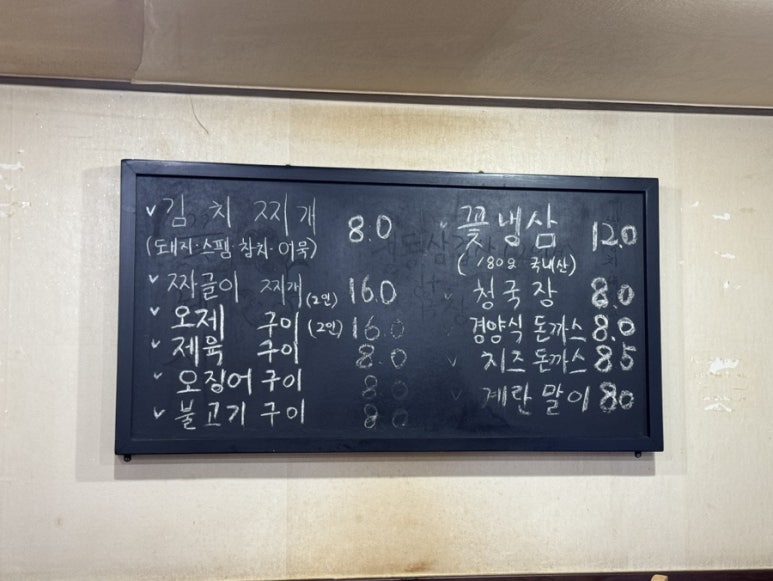 ✓김치찌개 8.0
(돼지·스팸·참치·어묵)
✓짜글이 찌개(2인) 16.0
✓오제 구이(2인) 16.0
✓제육 구이 8.0
✓오징어 구이 8.0
✓불고기 구이 8.0
✓꽃냉삼 12.0
(180g 국내산)
✓청국장 8.0
경양식 돈까스 8.0
✓치즈 돈까스 8.5
✓계란말이 8.0